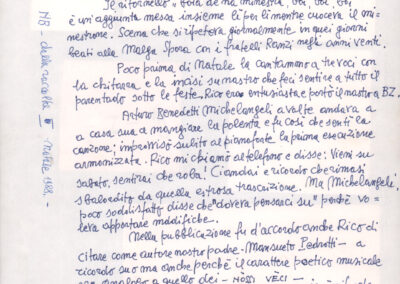 Il ritornello "Bola de na minestra, boi, boi, boi,
è un'aggiunta messa insieme lì per lì mentre cuoceva il mi-
nestrone. Scena che si ripeteva giornalmente in quei giorni
beati alla Malga Spora con i fratelli Ranzi negli anni venti.
Poco prima di Natale la cantammo a tre voci con
la chitarra e la incisi su nastro che feci sentire a tutto il
parentado sotto le feste. Rico era entusiasta e portò il nastro a BZ.
Arturo Benedetti Michelangeli a volte andava a
a casa sua a mangiare la polenta e fu così che sentì la
canzone; improvvisò subito al pianoforte la prima esecuzione
armonizzata. Rico mi chiamò al telefono e disse: Vieni su
sabato, sentirai che roba! Ci andai e ricordo che rimasi
sbalordito da quella estrosa trascrizione. Ma Michelangeli
poco soddisfatto disse che "doveva pensarci su" perché vo=
leva apportare modifiche.
Nella pubblicazione fu d'accordo anche Rico di
citare come autore nostro padre - Mansueto Pedrotti - a
ricordo suo ma anche perché il carattere poetico musicale
era analogo a quello dei - NÒSSI VÈCI -
NB - dalla raccolta II Natale 1988. -